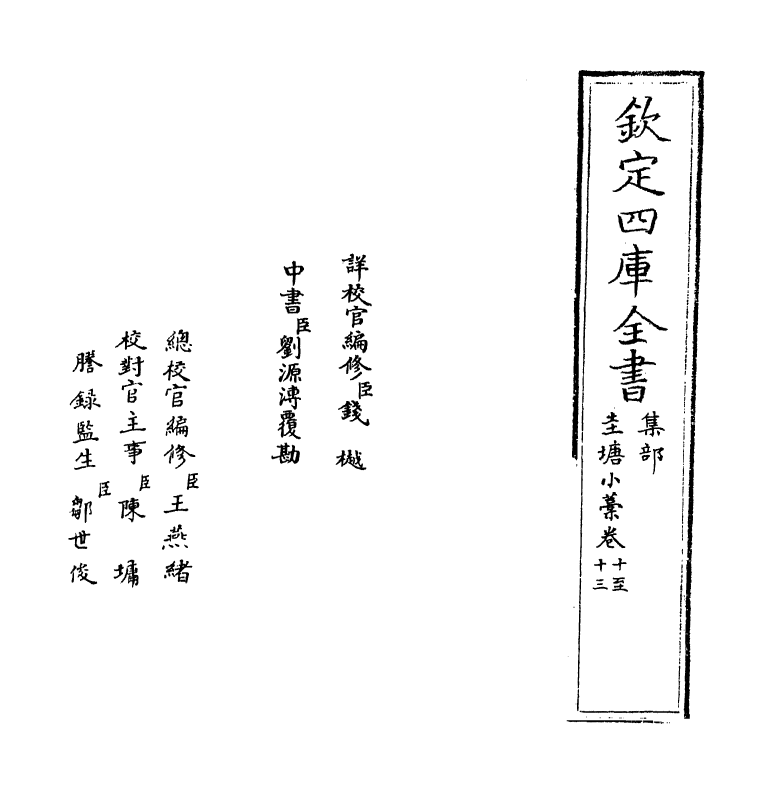 欽定四庫全書
集部
圭塘小藁卷十至十三
詳校官編修臣錢樾
中書臣劉源溥覆勘
總校官編修臣王燕緒
校對官主事臣陳墉
謄錄監生臣鄒世俊